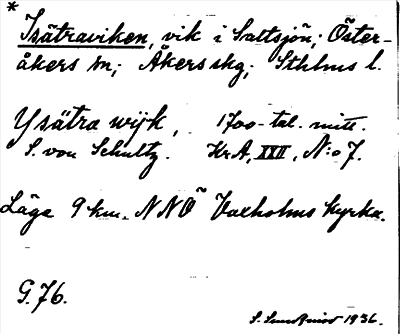 * Isätraviken, vik i Saltsjön; Öster-
åkers sn; Åkers skg; Sthlms l.
Ysätra wijk, 1700-tal. mitt.
S. von Schultz. Kr A, XXII, N:o 7.
Läge 9 km. NNÖ Vaxholms kyrka.
G. 76.
1936.